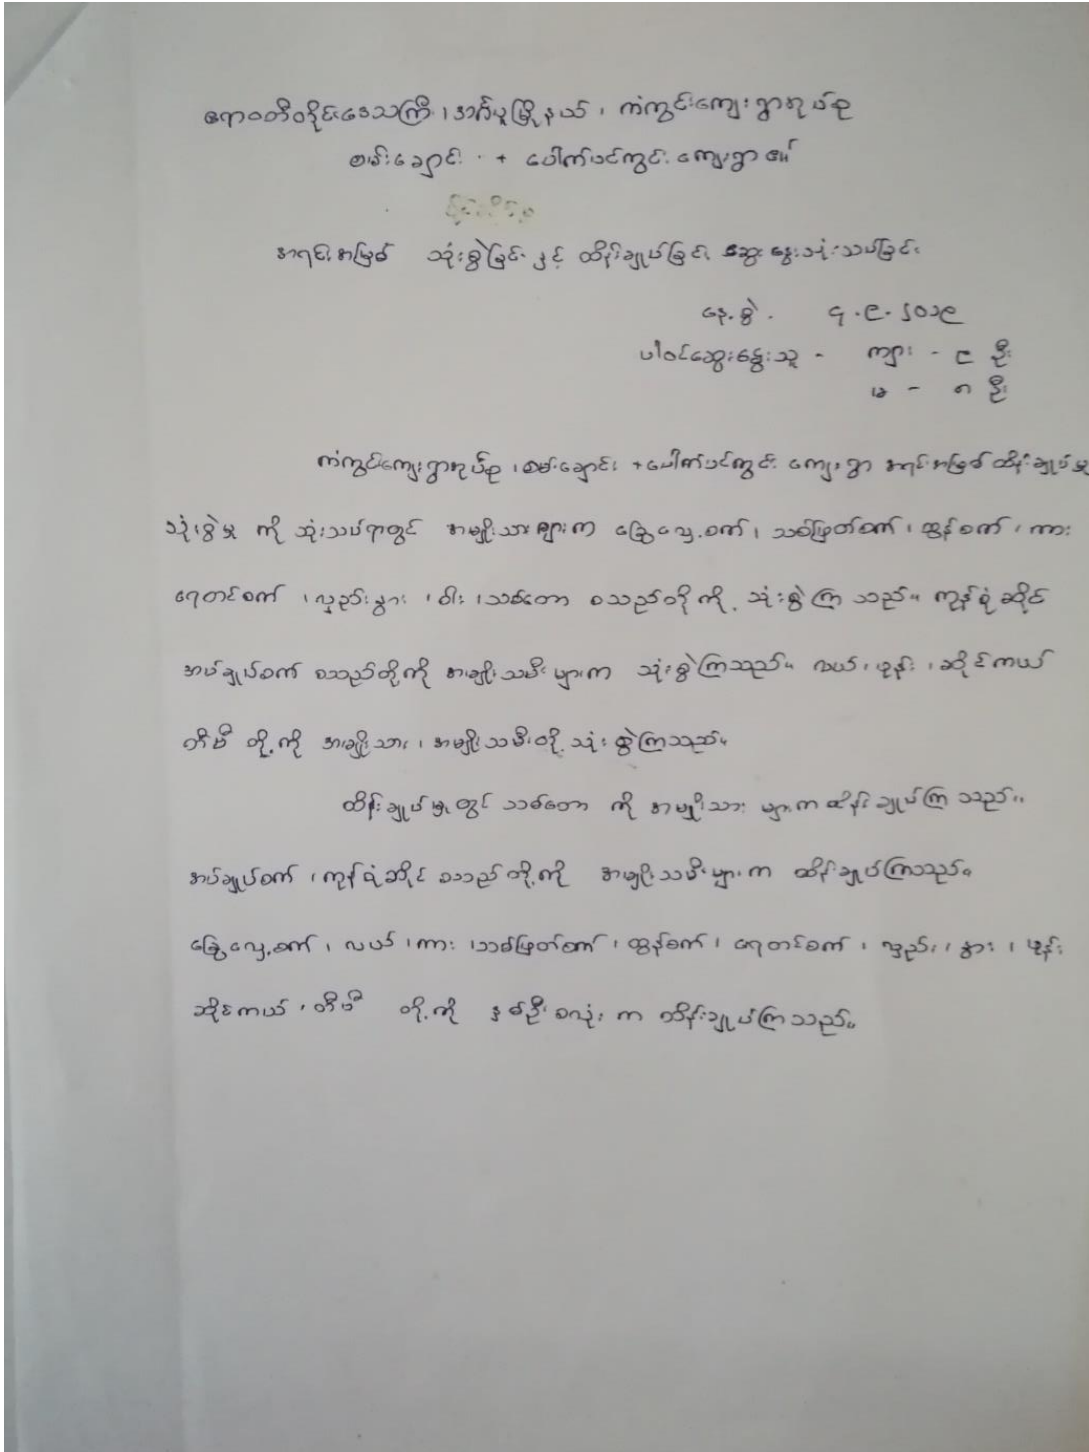 ဧရာဝတီတိုင်းဒေသကြီး၊ အင်္ဂပူမြို့နယ်၊ ကံကွင်းကျေးရွာအုပ်စု
စမ်းချောင်း + ပေါက်ပင်ကွင်း ကျေးရွာ၏
အရင်းအမြစ် သုံးစွဲခြင်းနှင့် ထိန်းချုပ်ခြင်း ဆွေးနွေးသုံးသပ်ခြင်း
နေ့စွဲ. ၄.၉.၂၀၁၉
ပါဝင်ဆွေးနွေးသူ - ကျား - ၉ ဦး
မ - ၈ ဦး
ကံကွင်းကျေးရွာအုပ်စု ၊ စမ်းချောင်း + ပေါက်ပင်ကွင်း ကျေးရွာ အရင်းအမြစ်ထိန်းချုပ်မှု
သုံးစွဲမှု ကို သုံးသပ်ရာတွင် အမျိုးသားများက ခြွေလှေ့စက်၊ သစ်ဖြတ်စက်၊ ထွန်စက်၊ ကား
ရေတင်စက် ၊ လှည်းနွား ၊ ဝါး ၊ သစ်တော စသည်တို့ကို သုံးစွဲကြသည်။ ကုန်စုံဆိုင်
အပ်ချုပ်စက် စသည်တို့ကို အမျိုးသမီးများက သုံးစွဲကြသည်။ လယ်၊ ဖုန်း ၊ ဆိုင်ကယ်
တီဗီ တို့ကို အမျိုးသား ၊ အမျိုးသမီးတို့ သုံးစွဲကြသည်။
ထိန်းချုပ်မှုတွင် သစ်တော ကို အမျိုးသား များက ထိန်းချုပ်ကြသည်။
အပ်ချုပ်စက် ၊ ကုန်စုံဆိုင် စသည်တို့ကို အမျိုးသမီးများက ထိန်းချုပ်ကြသည်။
ခြွေလှေ့စက် ၊ လယ် ၊ ကား ၊ သစ်ဖြတ်စက် ၊ ထွန်စက် ၊ ရေတင်စက် ၊ လှည်း ၊ နွား ၊ ဖုန်း
ဆိုင်ကယ် ၊ တီဗီ တို့ကို နှစ်ဦးစလုံး က ထိန်းချုပ်ကြသည်။